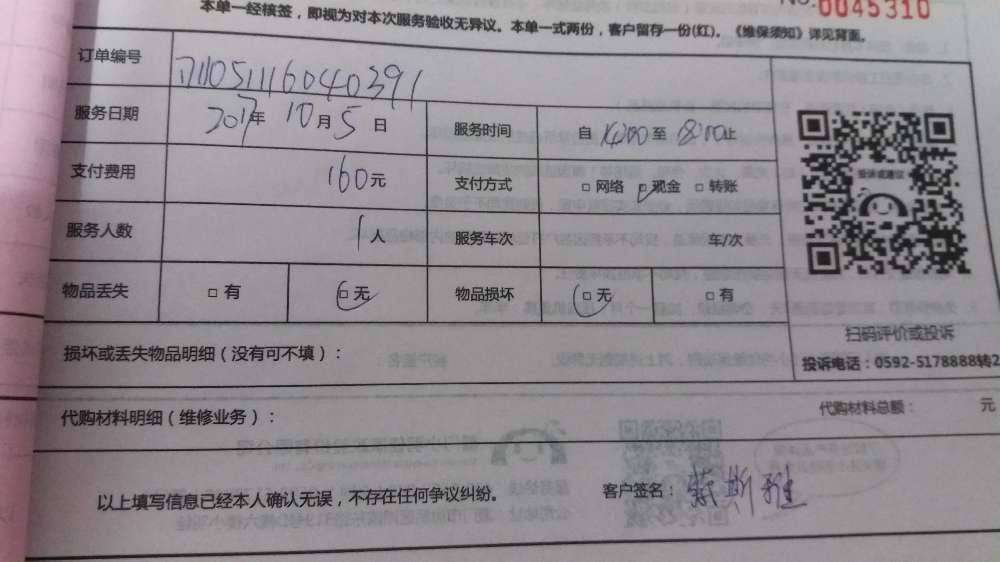 No.0045310
本单一经核签，即视为对本次服务验收无异议。本单一式两份，客户留存一份(红)。《维保须知》详见背面。
订单编号 1711051116040391
服务日期 2017年 10月5日 服务时间 自 1400 至 1800止
支付费用 160元 支付方式 □网络 □现金 □转账
服务人数 1人 服务车次 车/次
物品丢失 □有 □无 物品损坏 □无 □有
投诉或建议
扫码评价或投诉
投诉电话：0592-5178888转2
损坏或丢失物品明细（没有可不填）：
代购材料明细（维修业务）： 代购材料总额： 元
以上填写信息已经本人确认无误，不存在任何争议纠纷。 客户签名： 斯雅